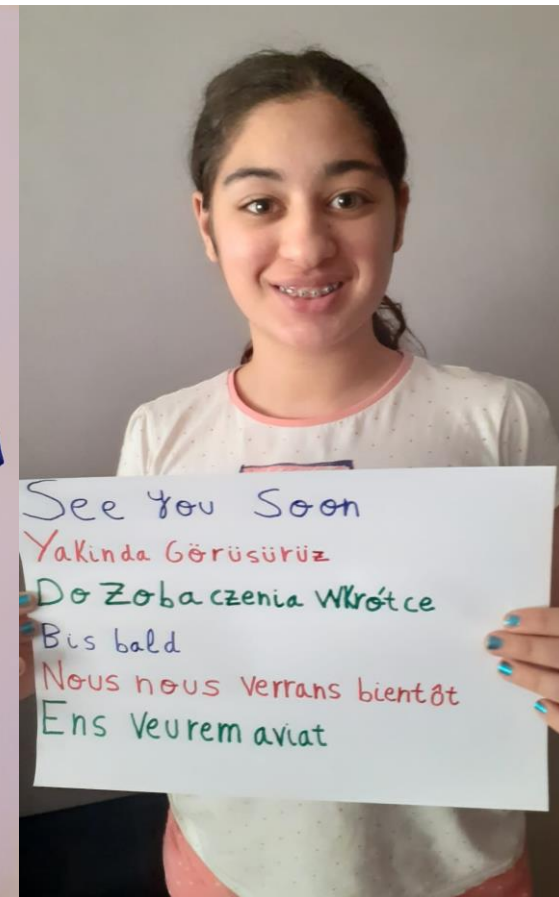 See You Soon
Yakinda Görüsürüz
Do Zobaczenia Wkrótce
Bis bald
Nous nous verrans bientôt
Ens Veurem aviat